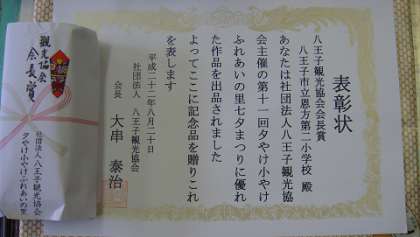 表彰状
八王子観光協会会長賞
八王子市立恩方第二小学校 殿
あなたは社団法人八王子観光協
会主催の第十一回夕やけ小やけ
ふれあいの里七夕まつりに優れ
た作品を出品されました
よってここに記念品を贈りこれ
を表します
平成二十二年八月二十日
社団法人 八王子観光協会
会長 大串 泰治
観光協会
会長賞
社団法人八王子観光協会
夕やけ小やけふれあいの里